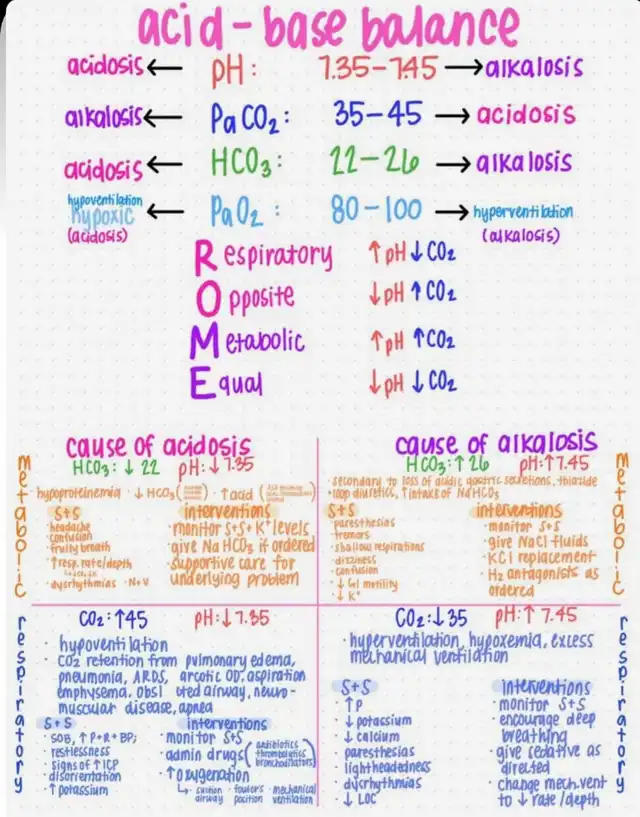 acid-base balance
acidosis ← pH: 7.35-7.45 → alkalosis
alkalosis ← PaCO₂: 35-45 → acidosis
acidosis ← HCO₃: 22-26 → alkalosis
hypoventilation
hypoxic ← PaO₂: 80-100 → hyperventilation
(acidosis) (alkalosis)
Respiratory ↑pH ↓CO₂
Opposite ↓pH ↑CO₂
Metabolic ↑pH ↑CO₂
Equal ↓pH ↓CO₂
cause of acidosis
metabolic
HCO₃: ↓22 pH: ↓7.35
· hypoproteinemia · ↓HCO₃ · ↑acid
S+S
· headache
· confusion
· fruity breath
· ↑resp. rate/depth
· dysrhythmias · N+V
interventions
· monitor S+S+ K⁺ levels
· give NaHCO₃ if ordered
· supportive care for
underlying problem
cause of alkalosis
metabolic
HCO₃: ↑26 pH: ↑7.45
· secondary to loss of acidic gastric secretions, thiazide
· loop diuretics, ↑intake of NaHCO₃
S+S
· paresthesias
· tremors
· shallow respirations
· dizziness
· confusion
· ↓GI motility
· ↓K⁺
interventions
· monitor S+S
· give NaCl fluids
· KCl replacement
· H₂ antagonists as
ordered
respiratory
CO₂: ↑45 pH: ↓7.35
· hypoventilation
· CO₂ retention from pulmonary edema,
pneumonia, ARDS, arcotic OD, aspiration
emphysema, obst cted airway, neuro-
muscular disease, apnea
S+S
· SOB, ↑P+R+BP;
· restlessness
· signs of ↑ICP
· disorientation
· ↑potassium
interventions
· monitor S+S
· admin drugs (antibiotics
thrombolytics
bronchodilators)
· ↑oxygenation
↳ · suction · fowler's · mechanical
airway position ventilation
respiratory
CO₂: ↓35 pH: ↑7.45
· hyperventilation, hypoxemia, excess
mechanical ventilation
S+S
· ↑P
· ↓potassium
· ↓calcium
· paresthesias
· lightheadedness
· dysrhythmias
· ↓LOC
interventions
· monitor S+S
· encourage deep
breathing
· give sedative as
directed
· change mech.vent
to ↓rate/depth